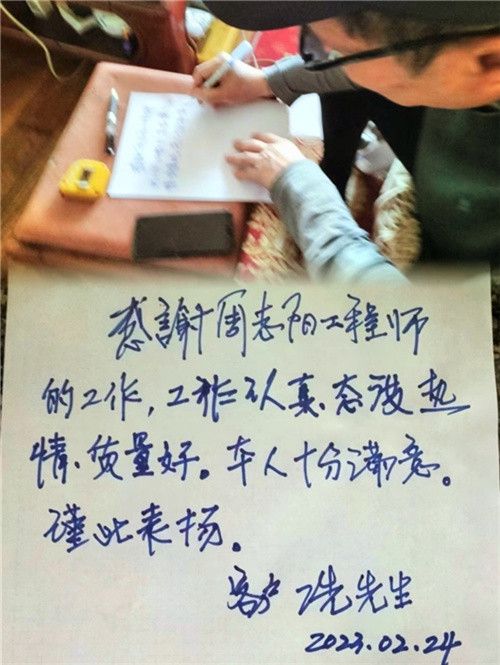 感謝周志阳工程师
的工作，工作认真、态度热
情、质量好。本人十分满意。
谨此表扬。
客户 冼先生
2023.02.24